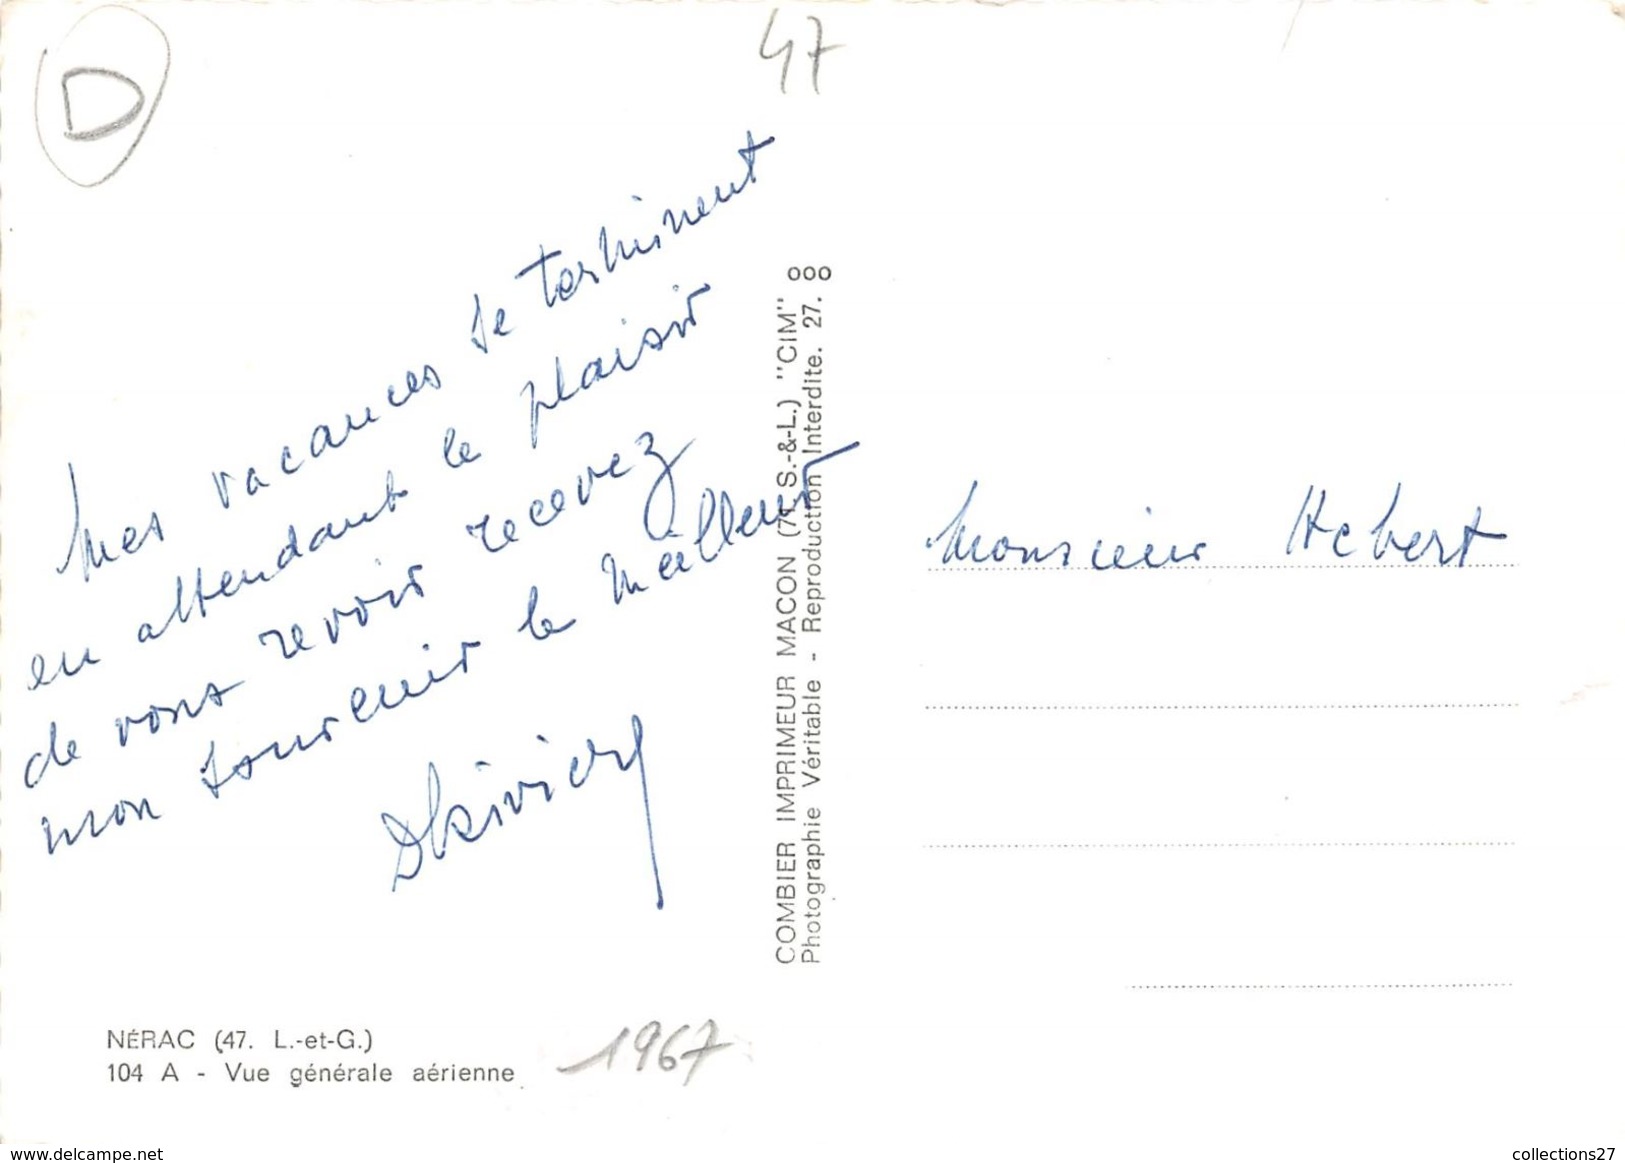 D
47
Mes vacances se terminent
en attendant le plaisir
de vous revoir recevez
mon souvenir le meilleur
COMBIER IMPRIMEUR MACON (71 S.-&-L.) "CIM"
Photographie Véritable - Reproduction Interdite. 27.
Monsieur Hebert
NÉRAC (47. L.-et-G.)
104 A - Vue générale aérienne
1967
www.delcampe.net
collections27